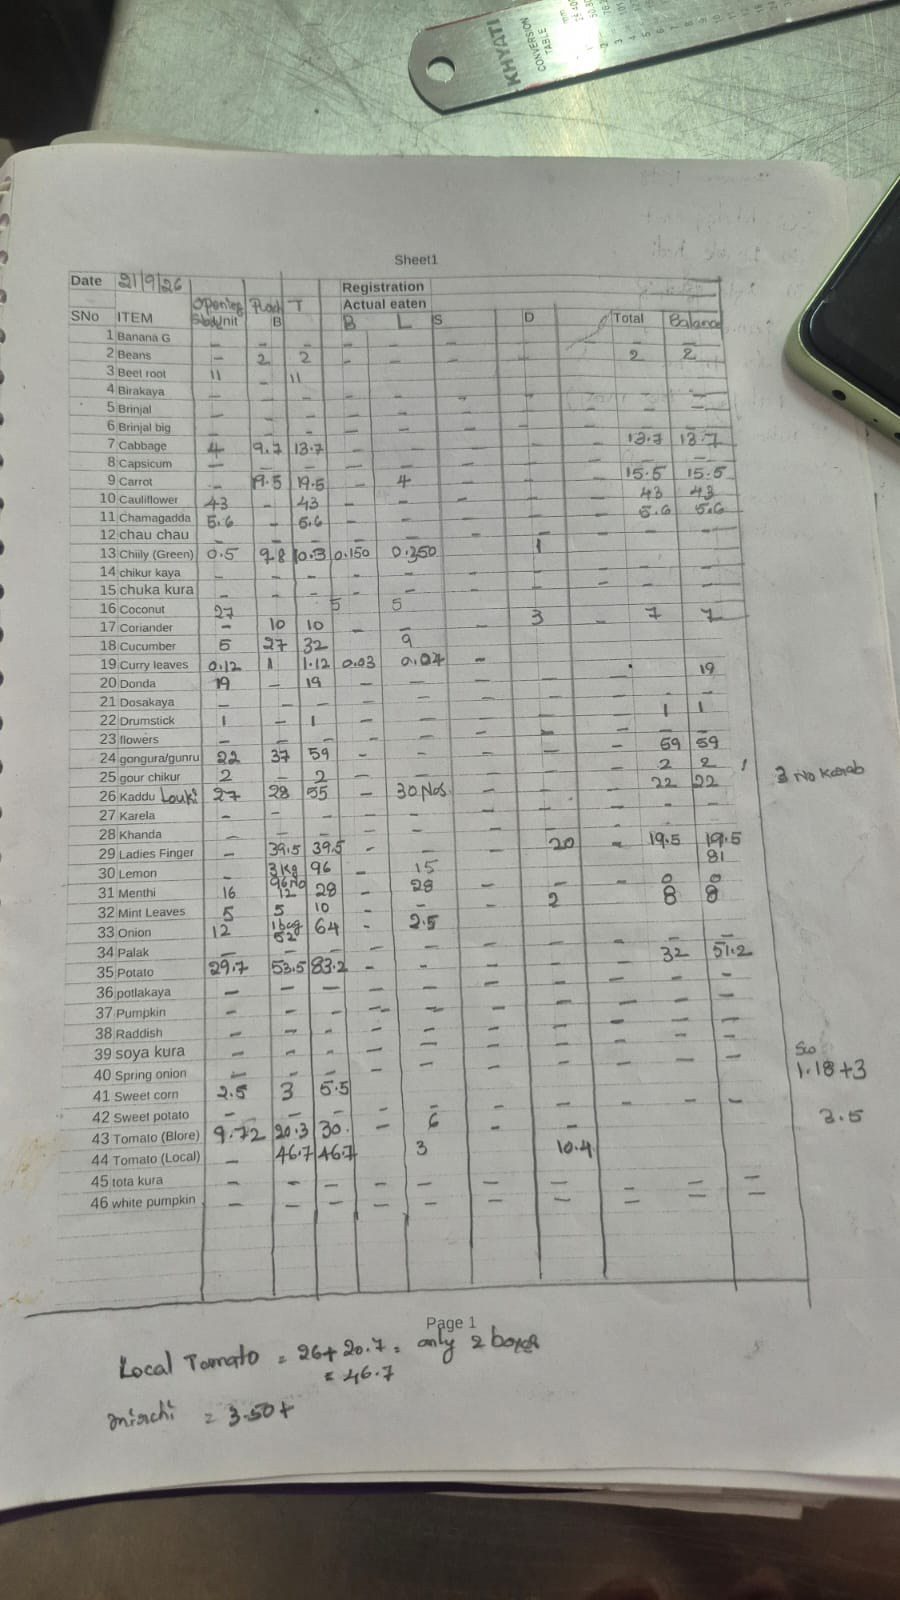 KHYATI
CONVERSION
TABLE
Sheet1
Date 21/9/26 Registration
Opening Purch T Actual eaten
SNo ITEM Unit B B L S D Total Balance
1 Banana G - - - - - - - - -
2 Beans - 2 2 - - - - 2 2
3 Beet root 11 - 11
4 Birakaya - - - - - - - - - -
5 Brinjal - - - - - - - - - -
6 Brinjal big - - - - - - - - - -
7 Cabbage 4 9.7 13.7 - - - - - 13.7 13.7
8 Capsicum - - - - - - - - - -
9 Carrot - 19.5 19.5 - 4 - - - 15.5 15.5
10 Cauliflower 43 - 43 - - - - - 43 43
11 Chamagadda 5.6 - 5.6 - - - - - 5.6 5.6
12 chau chau - - - - - - - - - -
13 Chiily (Green) 0.5 9.8 10.3 0.150 0.350 1
14 chikur kaya - - - - - - - - - -
15 chuka kura - - - - - - - - - -
16 Coconut 27 5 5
17 Coriander - 10 10 - - - 3 - 7 7
18 Cucumber 5 27 32 9
19 Curry leaves 0.12 1 1.12 0.03 0.04 -
20 Donda 19 - 19 - - - - - 19
21 Dosakaya - - - - - - - - - -
22 Drumstick 1 - 1 - - - - - 1 1
23 flowers - - - - - - - - - -
24 gongura/gunru 22 37 59 - - - - - 59 59
25 gour chikur 2 - 2 - - - - - 2 2
26 Kaddu Louki 27 28 55 - 30 Nos - - - 22 22
3 No Karab
27 Karela - - - - - - - - - -
28 Khanda - - - - - - - - - -
29 Ladies Finger - 39.5 39.5 - - - 20 - 19.5 19.5
30 Lemon - 3 Kg 96 No 96 15 81
31 Menthi 16 12 28 - 28 - - - 0 0
32 Mint Leaves 5 5 10 - - - 2 8 8
33 Onion 12 1 bag 52 64 - 2.5
34 Palak - - - - - - - - - -
35 Potato 29.7 53.5 83.2 - - - - - 32 51.2
36 potlakaya - - - - - - - - - -
37 Pumpkin - - - - - - - - - -
38 Raddish - - - - - - - - - -
39 soya kura - - - - - - - - - -
40 Spring onion - - - - - - - - - -
1.18+3
41 Sweet corn 2.5 3 5.5
42 Sweet potato - - - - - - - - - -
3.5
43 Tomato (Blore) 9.72 20.3 30. - 6 - -
44 Tomato (Local) - 46.7 46.7 3 10.4
45 tota kura - - - - - - - - - -
46 white pumpkin - - - - - - - - - -
Page 1
Local Tomato = 26+20.7 = only 2 boxes
= 46.7
mirchi = 3.50+